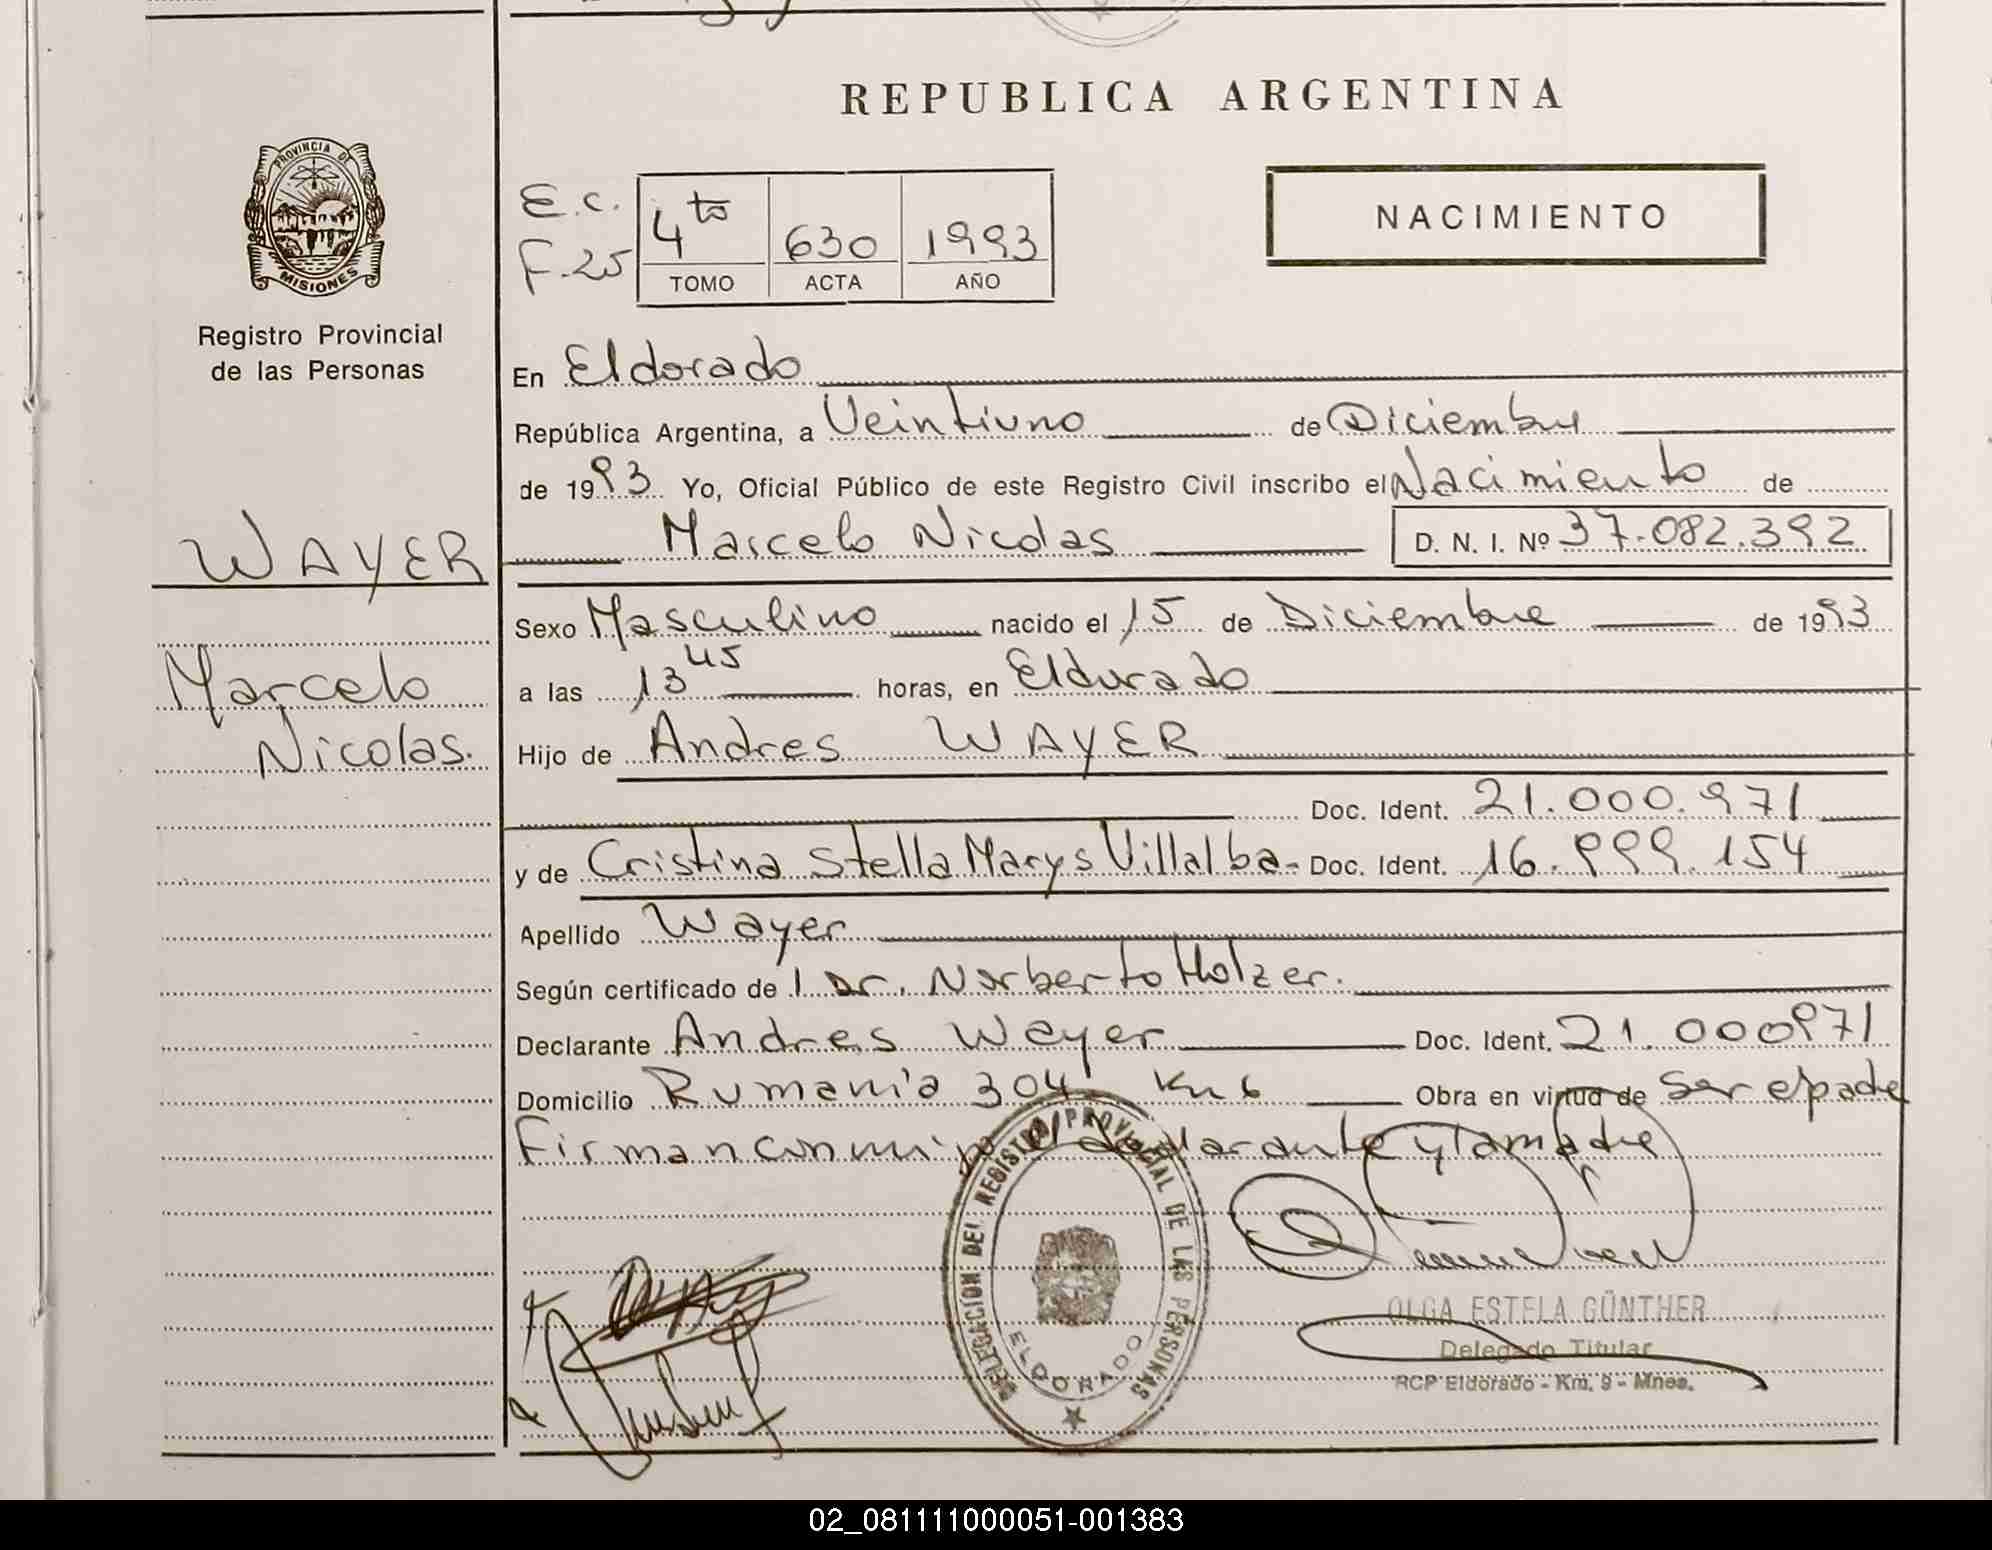 REPUBLICA ARGENTINA
PROVINCIA DE MISIONES
Registro Provincial
de las Personas
E.C.
F.25
4to 630 1993
TOMO ACTA AÑO
NACIMIENTO
WAYER
Marcelo
Nicolas.
En Eldorado
República Argentina, a Veintiuno de Diciembre
de 1993 Yo, Oficial Público de este Registro Civil inscribo el Nacimiento de
Marcelo Nicolas D. N. I. Nº 37.082.392
Sexo Masculino nacido el 15 de Diciembre de 1993
a las 13 45 horas, en Eldorado
Hijo de Andres WAYER
Doc. Ident. 21.000.971
y de Cristina Stella Marys Villalba- Doc. Ident. 16.999.154
Apellido Wayer
Según certificado de l Dr. Norberto Holzer.
Declarante Andres Wayer Doc. Ident. 21.000971
Domicilio Rumania 304 Km 6 Obra en virtud de Ser el padre
Firman conmigo el declarante y la madre
DELEGACION DEL REGISTRO PROVINCIAL DE LAS PERSONAS
ELDORADO
OLGA ESTELA GÜNTHER
Delegado Titular
RCP Eldorado - Km. 9 - Mnes.
02_081111000051-001383